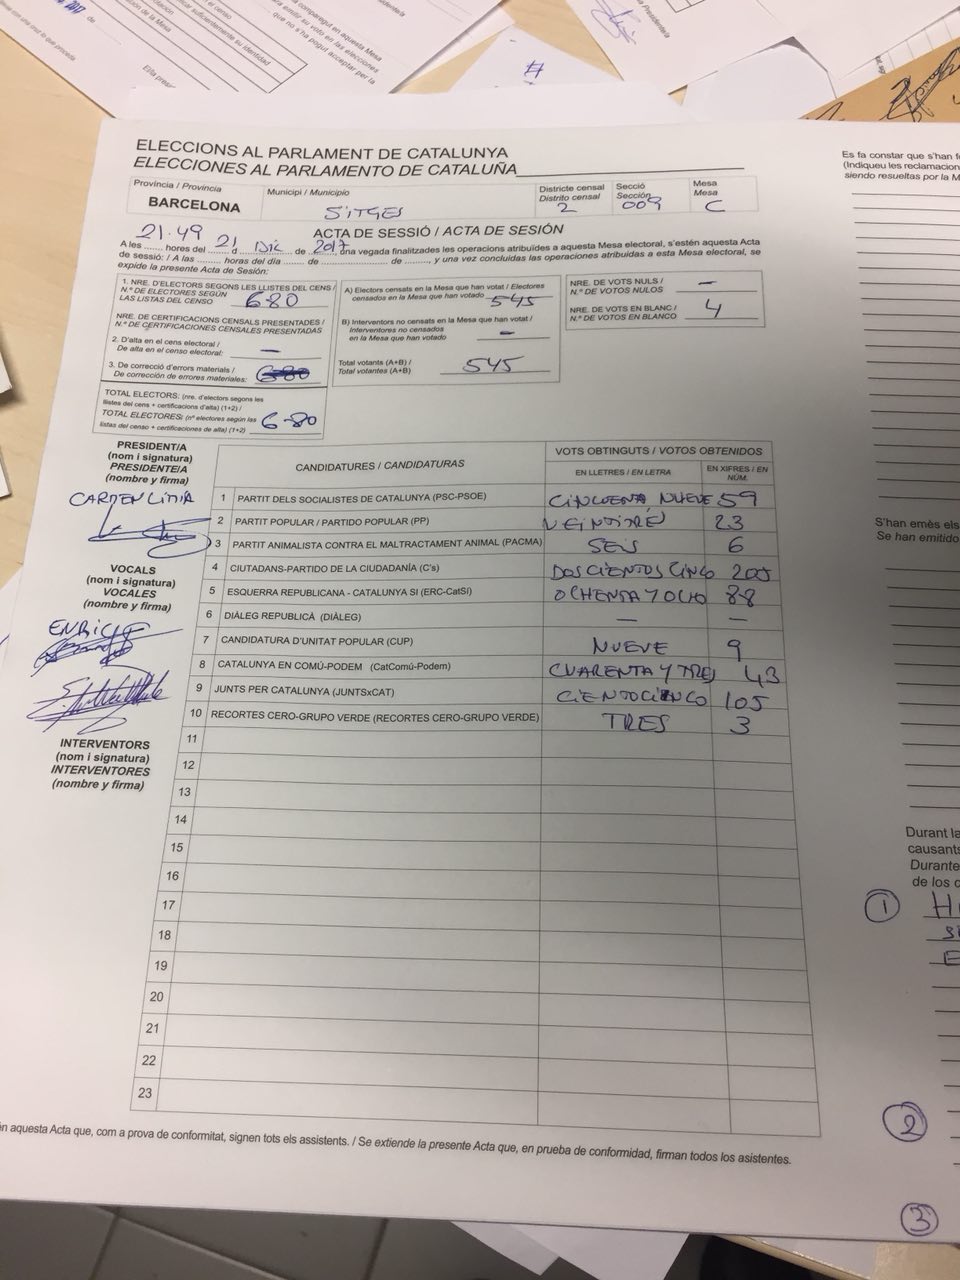 ELECCIONS AL PARLAMENT DE CATALUNYA
ELECCIONES AL PARLAMENTO DE CATALUÑA
Província / Provincia
BARCELONA
Municipi / Municipio
SITGES
Districte censal
Distrito censal
2
Secció
Sección
009
Mesa
Mesa
C
ACTA DE SESSIÓ / ACTA DE SESIÓN
21.49 21 Dic 2017
A les ....... hores del ....... d ............ de ........, una vegada finalitzades les operacions atribuïdes a aquesta Mesa electoral, s'estén aquesta Acta
de sessió: / A las ........ horas del día ....... de .................... de ........, y una vez concluidas las operaciones atribuidas a esta Mesa electoral, se
expide la presente Acta de Sesión:
1. NRE. D'ELECTORS SEGONS LES LLISTES DEL CENS /
N.º DE ELECTORES SEGÚN
LAS LISTAS DEL CENSO 680
NRE. DE CERTIFICACIONS CENSALS PRESENTADES /
N.º DE CERTIFICACIONES CENSALES PRESENTADAS
2. D'alta en el cens electoral /
De alta en el censo electoral: —
3. De correcció d'errors materials /
De corrección de errores materiales: 680
TOTAL ELECTORS: (nre. d'electors segons les
llistes del cens + certificacions d'alta) (1+2) /
TOTAL ELECTORES: (nº electores según las
listas del censo + certificaciones de alta) (1+2) 680
A) Electors censats en la Mesa que han votat / Electores
censados en la Mesa que han votado 545
B) Interventors no censats en la Mesa que han votat /
Interventores no censados
en la Mesa que han votado —
Total votants (A+B) /
Total votantes (A+B) 545
NRE. DE VOTS NULS /
N.º DE VOTOS NULOS —
NRE. DE VOTS EN BLANC /
N.º DE VOTOS EN BLANCO 4
PRESIDENT/A
(nom i signatura)
PRESIDENTE/A
(nombre y firma)
VOCALS
(nom i signatura)
VOCALES
(nombre y firma)
INTERVENTORS
(nom i signatura)
INTERVENTORES
(nombre y firma)
CANDIDATURES / CANDIDATURAS
VOTS OBTINGUTS / VOTOS OBTENIDOS
EN LLETRES / EN LETRA
EN XIFRES / EN NÚM.
1 PARTIT DELS SOCIALISTES DE CATALUNYA (PSC-PSOE) CINCUENA NUEVE 59
2 PARTIT POPULAR / PARTIDO POPULAR (PP) VEINTITRÉS 23
3 PARTIT ANIMALISTA CONTRA EL MALTRACTAMENT ANIMAL (PACMA) SEIS 6
4 CIUTADANS-PARTIDO DE LA CIUDADANÍA (C's) DOSCIENTOS CINCO 205
5 ESQUERRA REPUBLICANA - CATALUNYA SI (ERC-CatSí) OCHENTA Y OCHO 88
6 DIÀLEG REPUBLICÀ (DIÀLEG) — —
7 CANDIDATURA D'UNITAT POPULAR (CUP) NUEVE 9
8 CATALUNYA EN COMÚ-PODEM (CatComú-Podem) CUARENTA Y TRES 43
9 JUNTS PER CATALUNYA (JUNTSxCAT) CIENTOCINCO 105
10 RECORTES CERO-GRUPO VERDE (RECORTES CERO-GRUPO VERDE) TRES 3
11
12
13
14
15
16
17
18
19
20
21
22
23
én aquesta Acta que, com a prova de conformitat, signen tots els assistents. / Se extiende la presente Acta que, en prueba de conformidad, firman todos los asistentes.
Es fa constar que s'han
(Indiqueu les reclamacion
siendo resueltas por la M
S'han emès els
Se han emitido
Durant la
causants
Durante
de los
1
2
3